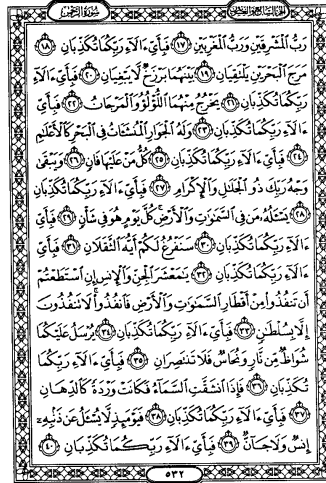 سُورَةُ الرَّحْمٰن الجزء السابع والعشرون
رَبُّ الْمَشْرِقَيْنِ وَرَبُّ الْمَغْرِبَيْنِ ١٧ فَبِأَيِّ ءَالَآءِ رَبِّكُمَا تُكَذِّبَانِ ١٨
مَرَجَ الْبَحْرَيْنِ يَلْتَقِيَانِ ١٩ بَيْنَهُمَا بَرْزَخٌ لَّا يَبْغِيَانِ ٢٠ فَبِأَيِّ ءَالَآءِ
رَبِّكُمَا تُكَذِّبَانِ ٢١ يَخْرُجُ مِنْهُمَا اللُّؤْلُؤُ وَالْمَرْجَانُ ٢٢ فَبِأَيِّ
ءَالَآءِ رَبِّكُمَا تُكَذِّبَانِ ٢٣ وَلَهُ الْجَوَارِ الْمُنشَـَٔاتُ فِي الْبَحْرِ كَالْأَعْلَٰمِ
٢٤ فَبِأَيِّ ءَالَآءِ رَبِّكُمَا تُكَذِّبَانِ ٢٥ كُلُّ مَنْ عَلَيْهَا فَانٍ ٢٦ وَيَبْقَىٰ
وَجْهُ رَبِّكَ ذُو الْجَلَٰلِ وَالْإِكْرَامِ ٢٧ فَبِأَيِّ ءَالَآءِ رَبِّكُمَا تُكَذِّبَانِ
٢٨ يَسْـَٔلُهُۥ مَن فِي السَّمَٰوَٰتِ وَالْأَرْضِ كُلَّ يَوْمٍ هُوَ فِي شَأْنٍ ٢٩ فَبِأَيِّ
ءَالَآءِ رَبِّكُمَا تُكَذِّبَانِ ٣٠ سَنَفْرُغُ لَكُمْ أَيُّهَ الثَّقَلَانِ ٣١ فَبِأَيِّ
ءَالَآءِ رَبِّكُمَا تُكَذِّبَانِ ٣٢ يَٰمَعْشَرَ الْجِنِّ وَالْإِنسِ إِنِ اسْتَطَعْتُمْ
أَن تَنفُذُوا مِنْ أَقْطَارِ السَّمَٰوَٰتِ وَالْأَرْضِ فَانفُذُوا لَا تَنفُذُونَ
إِلَّا بِسُلْطَٰنٍ ٣٣ فَبِأَيِّ ءَالَآءِ رَبِّكُمَا تُكَذِّبَانِ ٣٤ يُرْسَلُ عَلَيْكُمَا
شُوَاظٌ مِّن نَّارٍ وَنُحَاسٌ فَلَا تَنتَصِرَانِ ٣٥ فَبِأَيِّ ءَالَآءِ رَبِّكُمَا
تُكَذِّبَانِ ٣٦ فَإِذَا انشَقَّتِ السَّمَآءُ فَكَانَتْ وَرْدَةً كَالدِّهَانِ
٣٧ فَبِأَيِّ ءَالَآءِ رَبِّكُمَا تُكَذِّبَانِ ٣٨ فَيَوْمَئِذٍ لَّا يُسْـَٔلُ عَن ذَنۢبِهِۦٓ
إِنسٌ وَلَا جَآنٌّ ٣٩ فَبِأَيِّ ءَالَآءِ رَبِّكُمَا تُكَذِّبَانِ ٤٠
٥٣٢